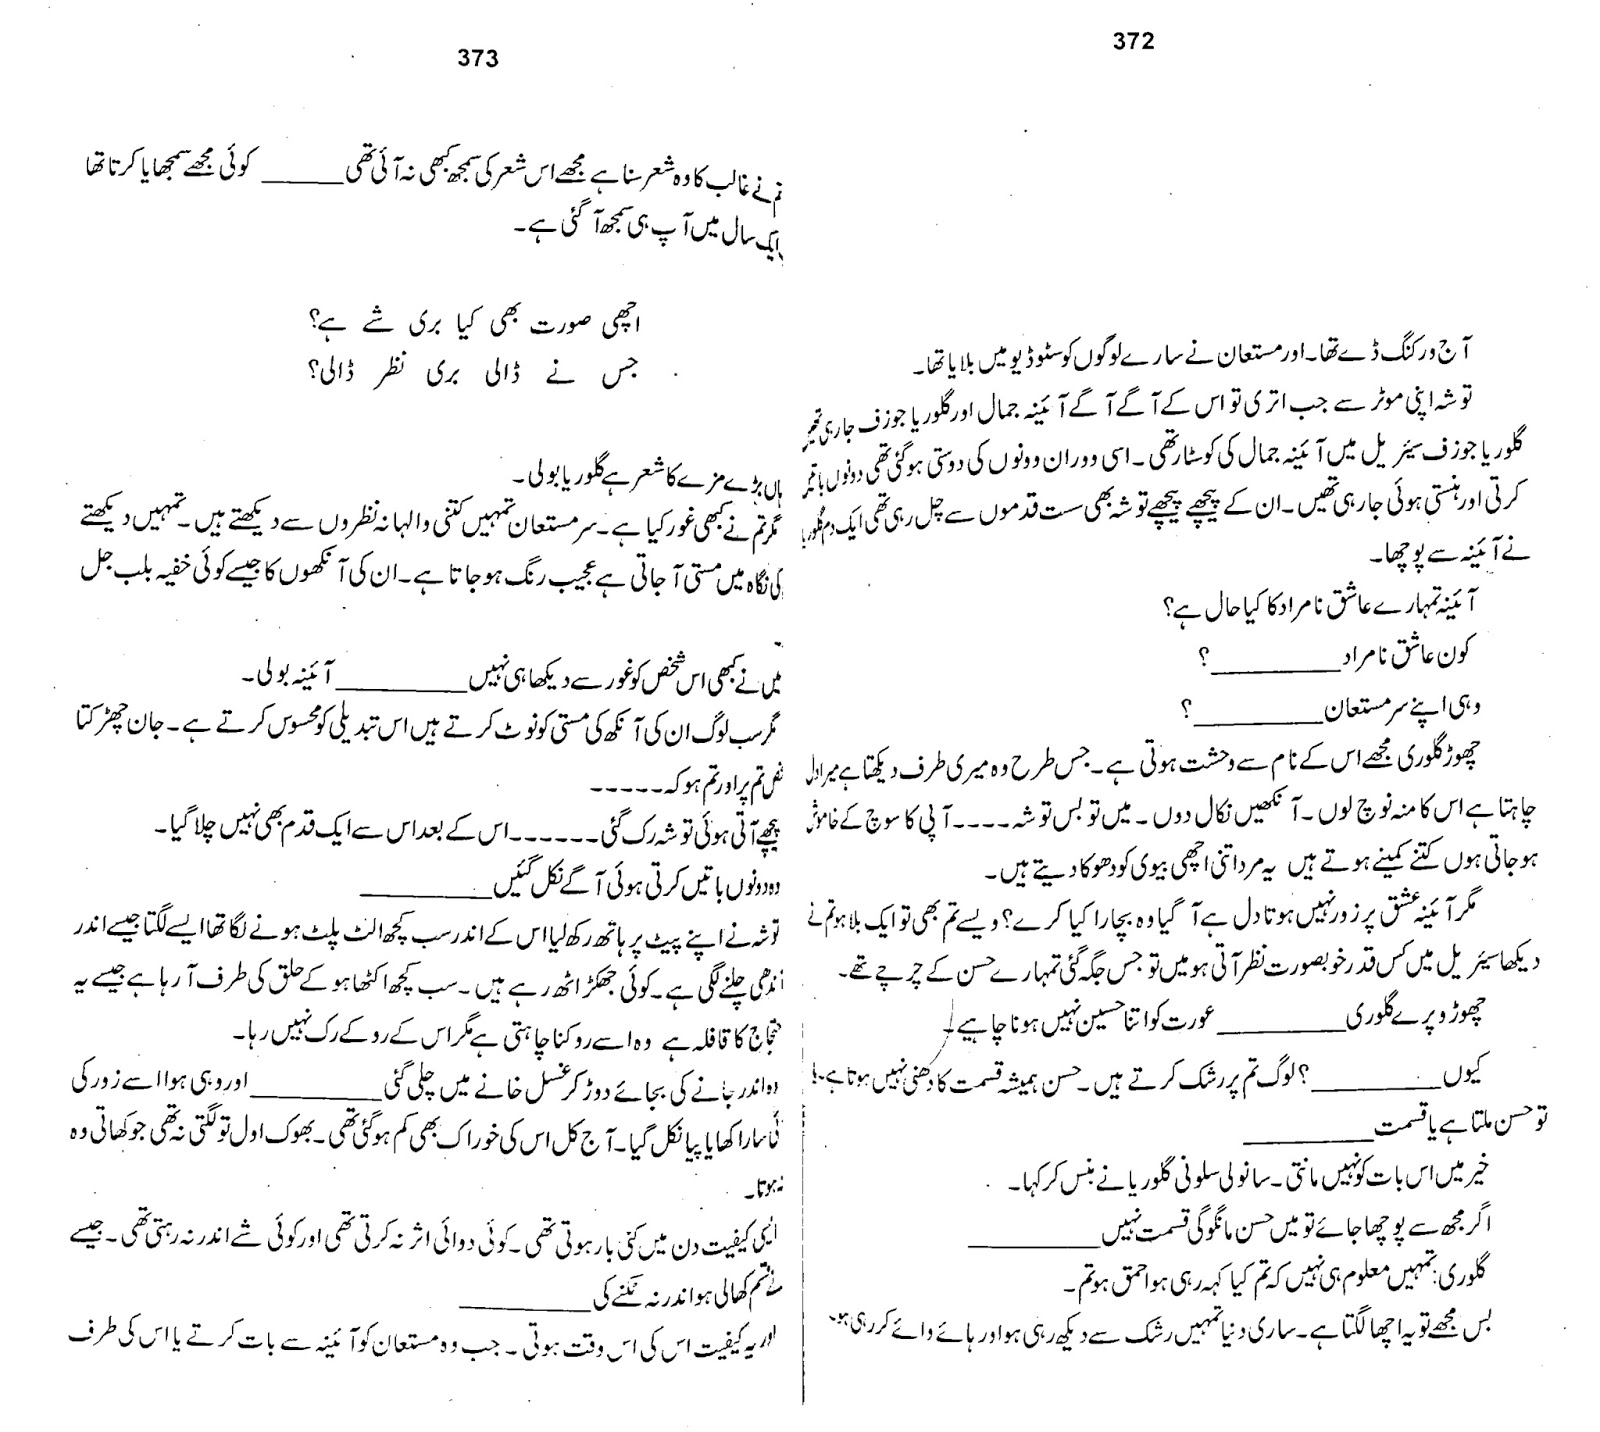 372
آج ورکنگ ڈے تھا۔ اور مستعان نے سارے لوگوں کو سٹوڈیو میں بلایا تھا۔
توشہ اپنی موٹر سے جب اتری تو اس کے آگے آگے آئینہ جمال اور گلوریا جوزف جا رہی تھیں
گلوریا جوزف سیئریل میں آئینہ جمال کی کوسٹار تھی۔ اسی دوران دونوں کی دوستی ہو گئی تھی دونوں باتیں
کرتی اور ہنستی ہوئی جا رہی تھیں۔ ان کے پیچھے پیچھے توشہ بھی ست قدموں سے چل رہی تھی ایک دم گلوریا
نے آئینہ سے پوچھا۔
آئینہ تمہارے عاشق نامراد کا کیا حال ہے؟
کون عاشق نامراد ________؟
وہی اپنے سر مستعان ________؟
چھوڑ گلوری مجھے اس کے نام سے وحشت ہوتی ہے۔ جس طرح وہ میری طرف دیکھتا ہے میرا دل
چاہتا ہے اس کا منہ نوچ لوں۔ آنکھیں نکال دوں۔ میں تو بس توشہ ۔۔۔۔ آپی کا سوچ کے خاموش
ہو جاتی ہوں کتنے کمینے ہوتے ہیں یہ مرد اتنی اچھی بیوی کو دھوکا دیتے ہیں۔
مگر آئینہ عشق پر زور نہیں ہوتا دل ہے آ گیا وہ بچارا کیا کرے؟ ویسے تم بھی تو ایک بلا ہو تم نے
دیکھا سیئریل میں کس قدر خوبصورت نظر آتی ہو میں تو جس جگہ گئی تمہارے حسن کے چرچے تھے۔
چھوڑو پرے گلوری ________ عورت کو اتنا حسین نہیں ہونا چاہیے!
کیوں ________؟ لوگ تم پر رشک کرتے ہیں۔ حسن ہمیشہ قسمت کا دھنی نہیں ہوتا ہے۔ یا
تو حسن ملتا ہے یا قسمت ________
خیر میں اس بات کو نہیں مانتی۔ سانولی سلونی گلوریا نے ہنس کر کہا۔
اگر مجھ سے پوچھا جائے تو میں حسن مانگوگی قسمت نہیں ________
گلوری: تمہیں معلوم ہی نہیں کہ تم کیا کہہ رہی ہو احمق ہو تم۔
بس مجھے تو یہ اچھا لگتا ہے۔ ساری دنیا تمہیں رشک سے دیکھ رہی ہو اور ہائے وائے کر رہی ہو۔
373
تم نے غالب کا وہ شعر سنا ہے مجھے اس شعر کی سمجھ کبھی نہ آئی تھی ________ کوئی مجھے سمجھایا کرتا تھا
ایک سال میں آپ ہی سمجھ آ گئی ہے۔
اچھی صورت بھی کیا بری شے ہے؟
جس نے ڈالی بری نظر ڈالی؟
ہاں بڑے مزے کا شعر ہے گلوریا بولی۔
مگر تم نے کبھی غور کیا ہے۔ سر مستعان تمہیں کتنی والہانہ نظروں سے دیکھتے ہیں۔ تمہیں دیکھتے
کی نگاہ میں مستی آ جاتی ہے عجیب رنگ ہو جاتا ہے۔ ان کی آنکھوں کا جیسے کوئی خفیہ بلب جل
میں نے کبھی اس شخص کو غور سے دیکھا ہی نہیں ________ آئینہ بولی۔
مگر سب لوگ ان کی آنکھ کی مستی کو نوٹ کرتے ہیں اس تبدیلی کو محسوس کرتے ہے۔ جان چھڑکتا
تم پر اور تم ہو کہ ۔۔۔۔۔
پیچھے آتی ہوئی توشہ رک گئی ۔۔۔۔۔۔ اس کے بعد اس سے ایک قدم بھی نہیں چلا گیا۔
وہ دونوں باتیں کرتی ہوئی آگے نکل گئیں ________
توشہ نے اپنے پیٹ پر ہاتھ رکھ لیا اس کے اندر سب کچھ الٹ پلٹ ہونے لگا تھا ایسے لگتا جیسے اندر
آندھی چلنے لگی ہے۔ کوئی جھکڑ اٹھ رہے ہیں۔ سب کچھ اکٹھا ہو کے حلق کی طرف آ رہا ہے جیسے یہ
حجاج کا قافلہ ہے وہ اسے روکنا چاہتی ہے مگر اس کے روکے رک نہیں رہا۔
وہ اندر جانے کی بجائے دوڑ کر غسل خانے میں چلی گئی ________ اور وہی ہوا اسے زور کی
سارا کھایا پیا نکل گیا۔ آج کل اس کی خوراک بھی کم ہو گئی تھی۔ بھوک اول تو لگتی نہ تھی جو کھاتی وہ
ہوتا۔
ایسی کیفیت دن میں کئی بار ہوتی تھی۔ کوئی دوائی اثر نہ کرتی تھی اور کوئی شے اندر نہ رہتی تھی۔ جیسے
قسم کھا لی ہو اندر نہ ٹکنے کی ________
اور یہ کیفیت اس کی اس وقت ہوتی۔ جب وہ مستعان کو آئینہ سے بات کرتے یا اس کی طرف